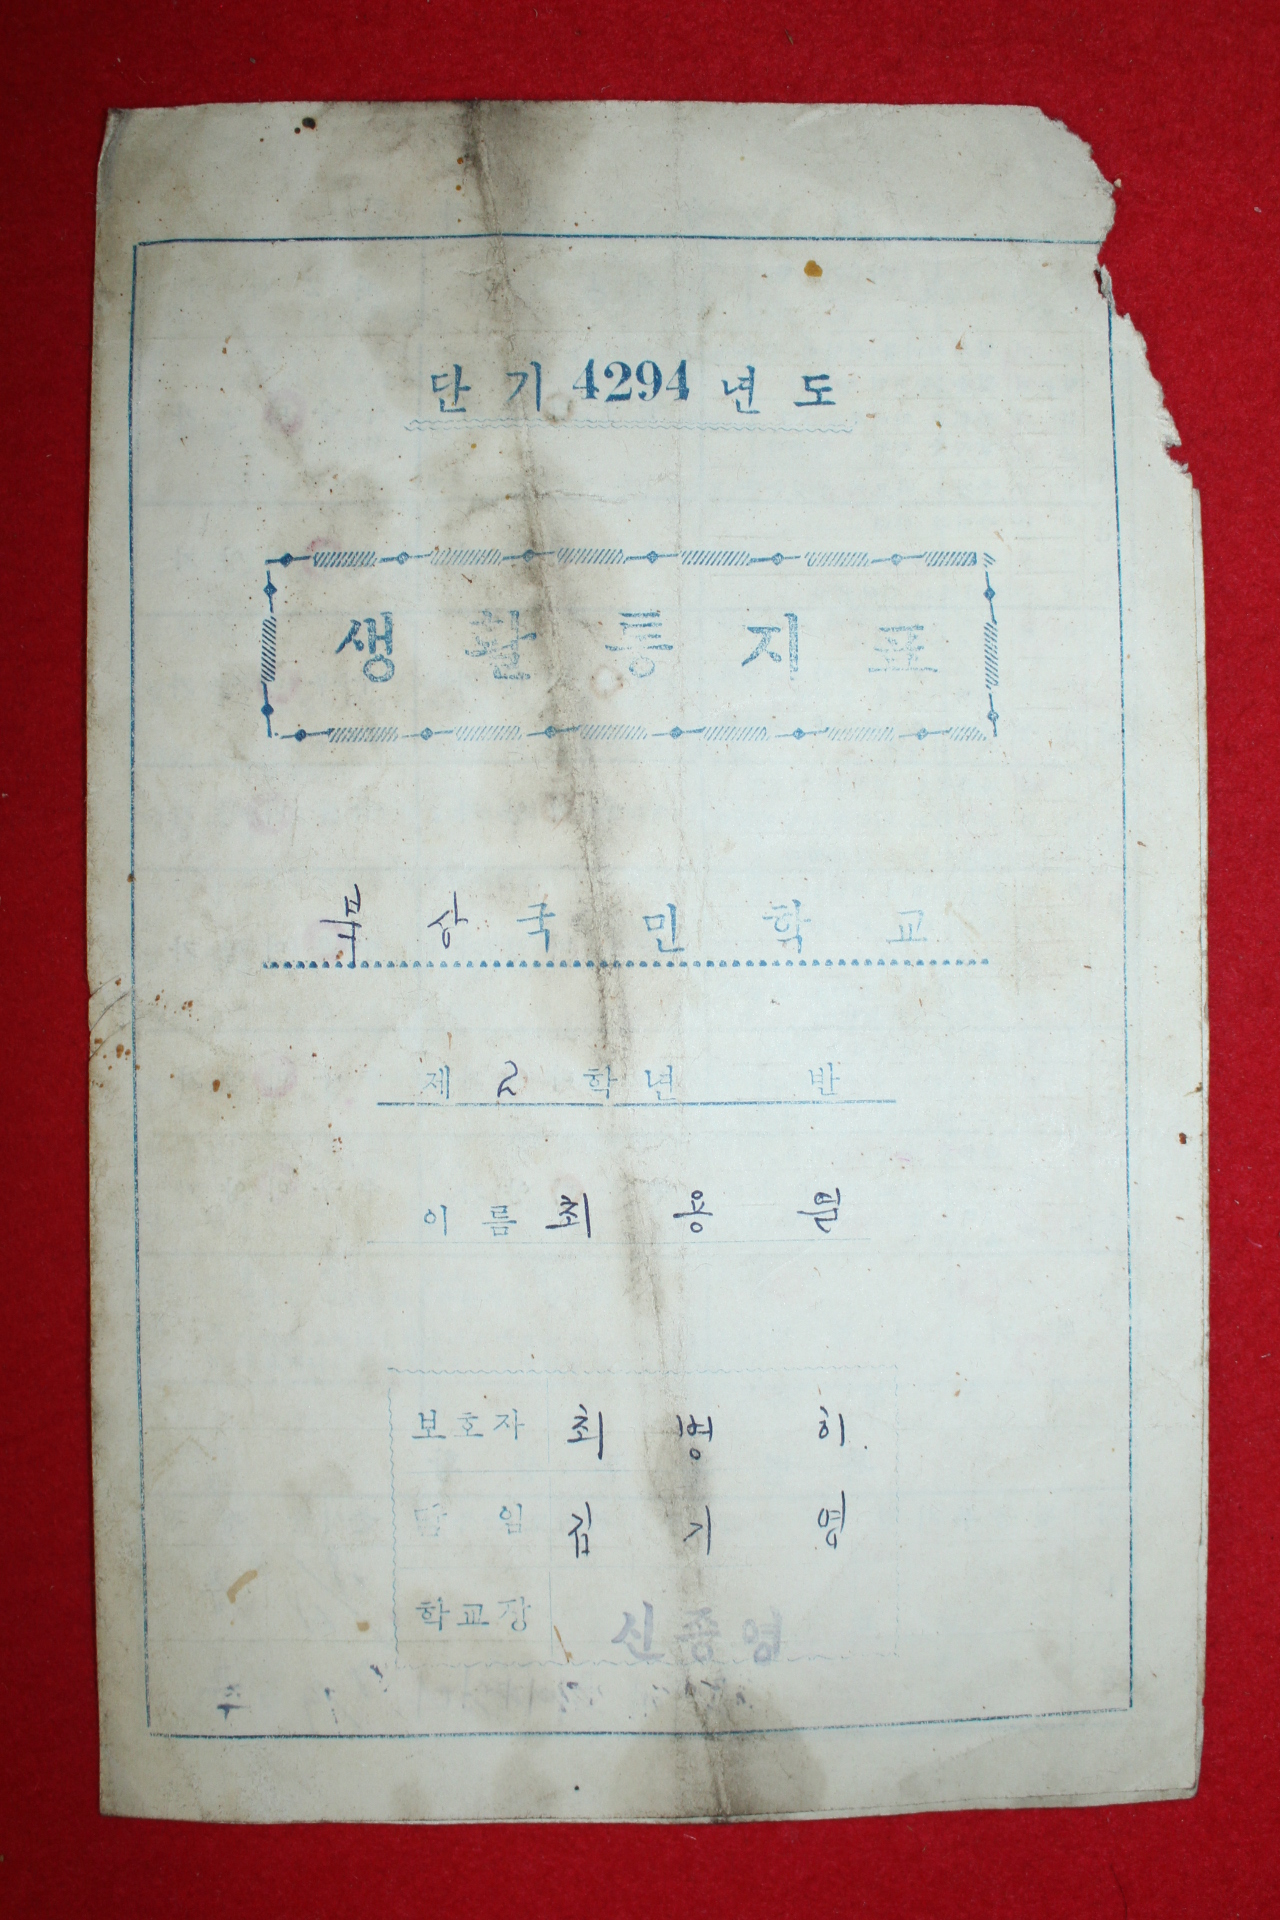 단기 4294 년도
생활통지표
상국민학교
제 2 학년 반
이름 최 용
보호자 최 병 히
담임 김 기 영
학교장 신종영